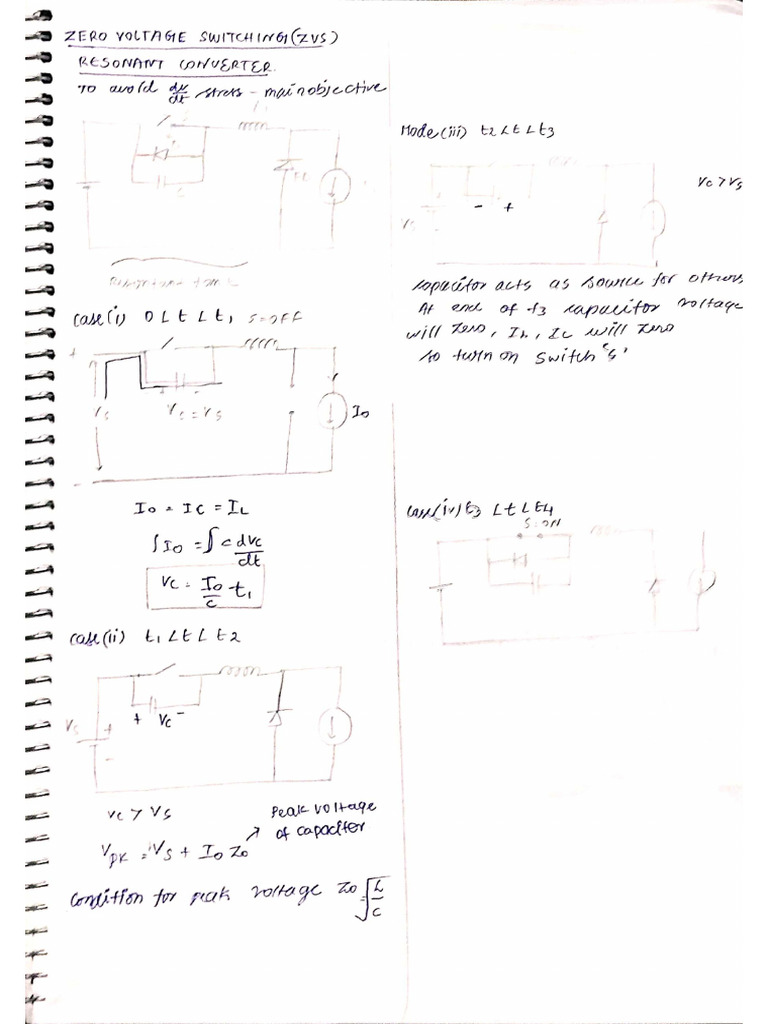 ZERO VOLTAGE SWITCHING (ZVS)
RESONANT CONVERTER.
To avoid dv/dt stress - main objective
case(i) 0 < t < t1 S=OFF
+
Vs
+ -
Vs = Vs
I0
-
I0 = IC = IL
∫I0 = ∫c dvc/dt
Vc = I0/c t1
case(ii) t1 < t < t2
Vs
+
-
+ Vc -
Vc > Vs
Peak voltage
of capaciter
Vpk = Vs + I0 Z0
condition for peak voltage Z0 = √L/c
Mode(iii) t2 < t < t3
Vc > Vs
Vs
- +
capacitor acts as source for others
At end of t3 capacitor voltage
will zero, IL, Ic will zero
to turn on switch 'S'
case(iv) t3 < t < t4
S=ON